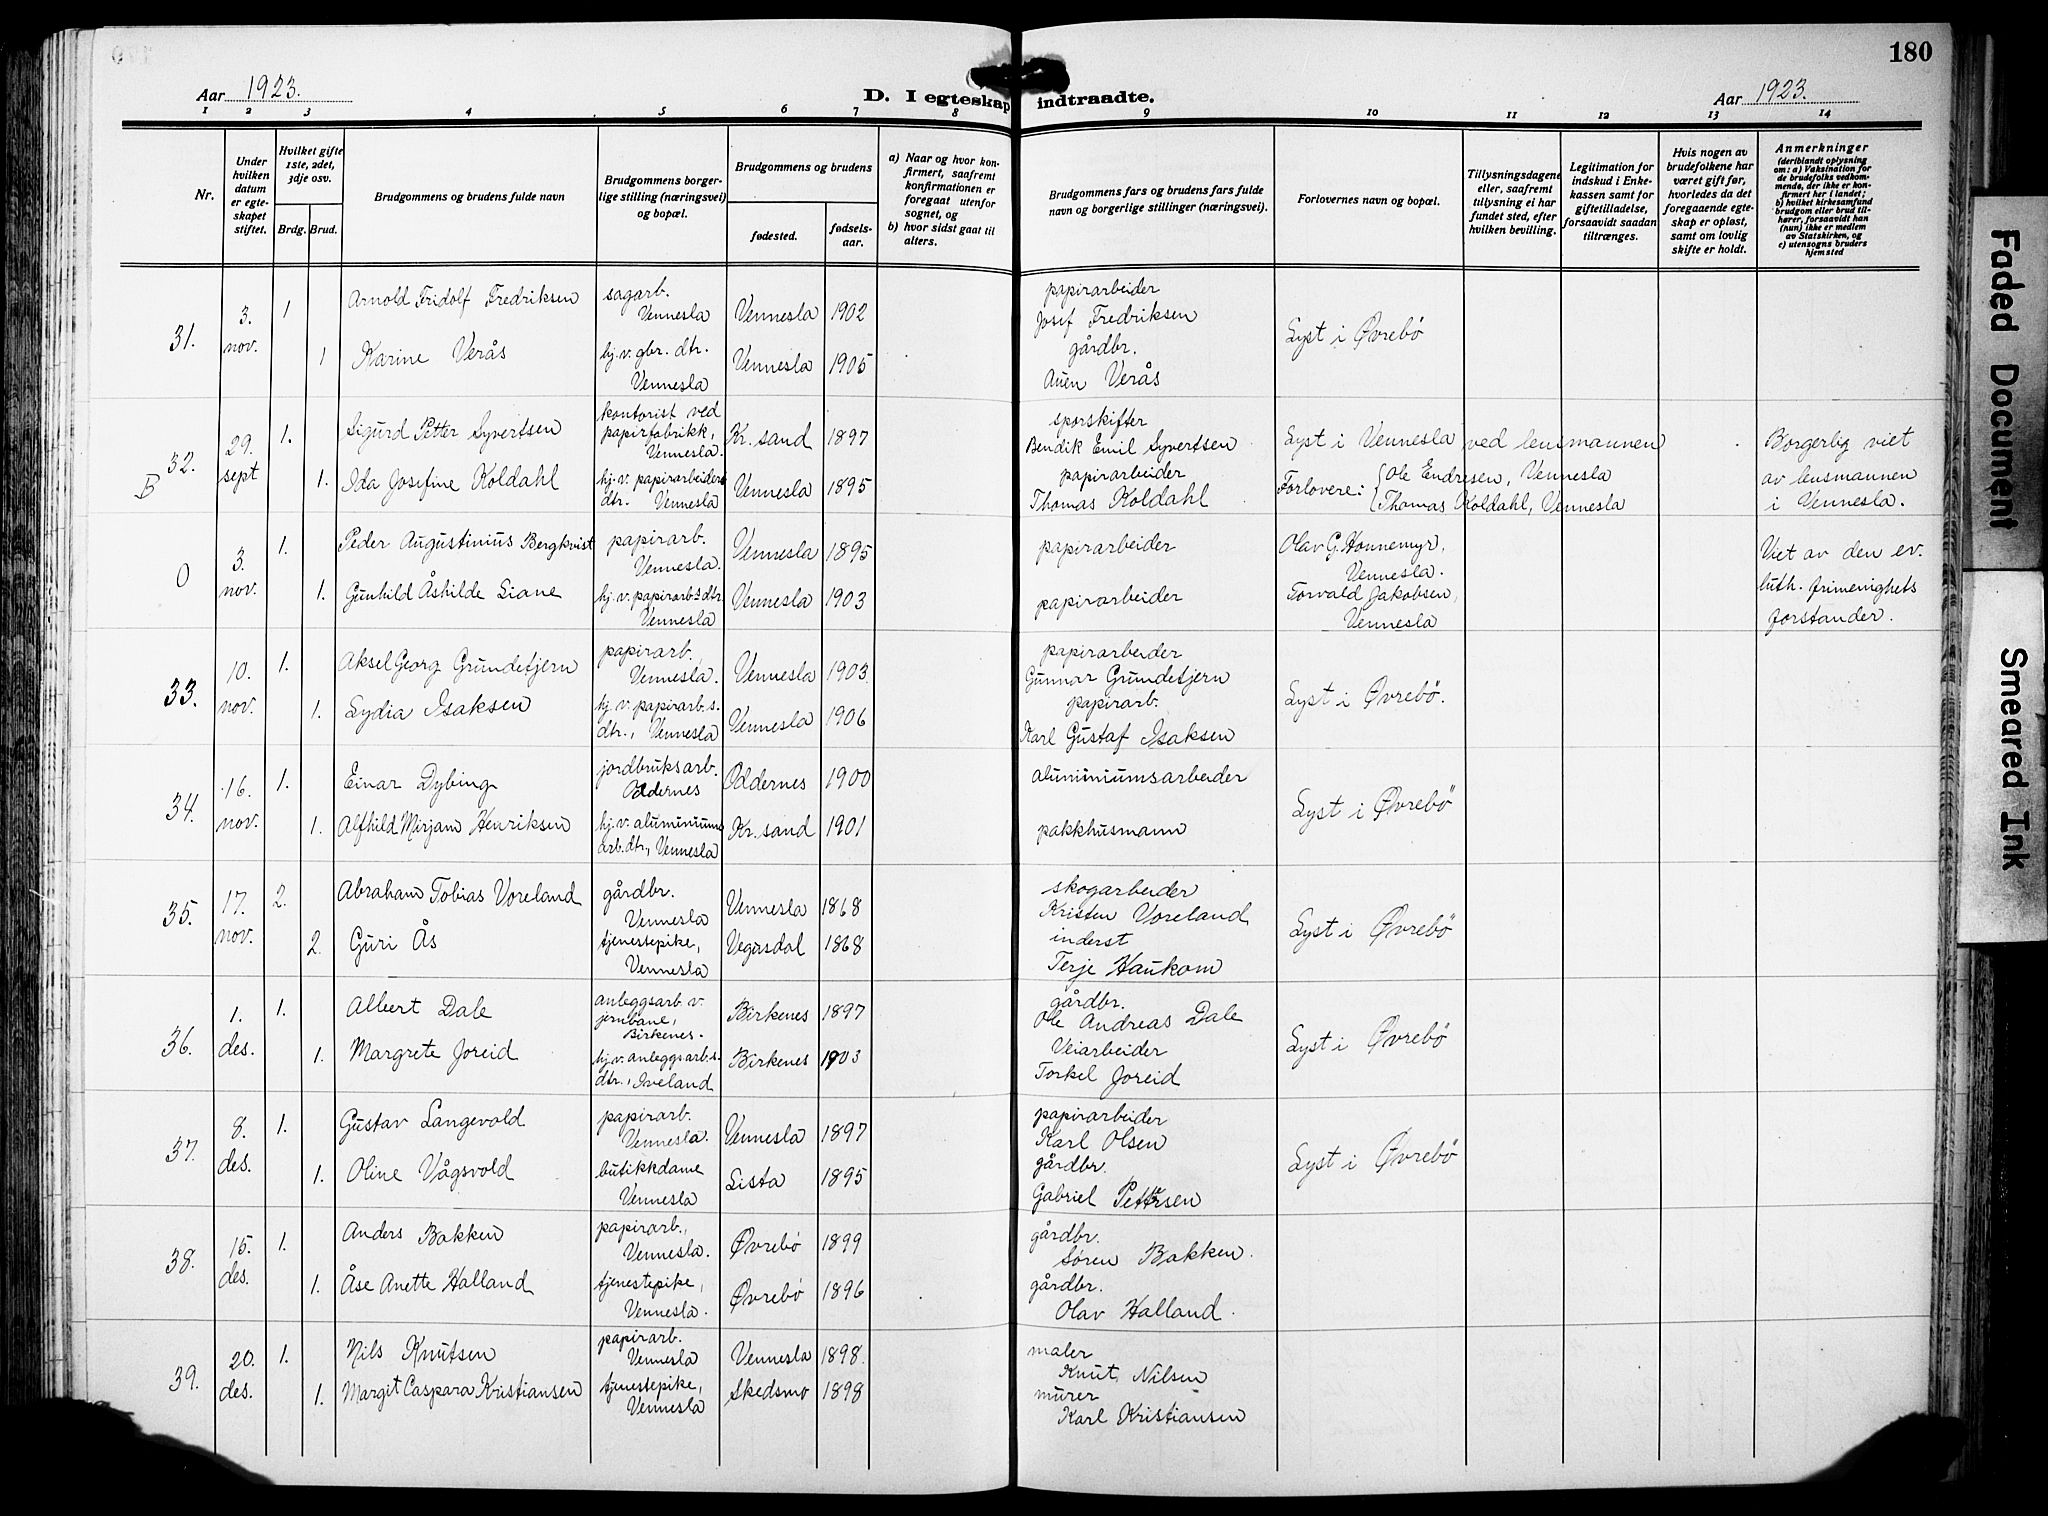 180
Aar 1923.
D. I egteskap indtraadte.
Aar 1923.
1 2 3 4 5 6 7 8 9 10 11 12 13 14
Nr.
Under hvilken datum er egteskapet stiftet.
Hvilket gifte 1ste, 2det, 3dje osv.
Brdg. Brud.
Brudgommens og brudens fulde navn
Brudgommens borgerlige stilling (næringsvei) og bopæl.
Brudgommens og brudens
fødested.
fødselsaar.
a) Naar og hvor konfirmert, saafremt konfirmationen er foregaat utenfor sognet, og
b) hvor sidst gaat til alters.
Brudgommens fars og brudens fars fulde navn og borgerlige stillinger (næringsvei).
Forlovernes navn og bopæl.
Tillysningsdagene eller, saafremt tillysning ei har fundet sted, efter hvilken bevilling.
Legitimation for indskud i Enkekassen samt for giftetilladelse, forsaavidt saadan tiltrænges.
Hvis nogen av brudefolkene har været gift før, hvorledes da det foregaaende egteskap er opløst, samt om lovlig skifte er holdt.
Anmerkninger (deriblandt oplysning om: a) Vaksination for de brudefolks vedkommende, der ikke er konfirmert her i landet; b) hvilket kirkesamfund brudgom eller brud tilhører, forsaavidt han (hun) ikke er medlem av Statskirken, og c) utensogns bruders hjemsted
31. 3. nov. 1 Arnold Fridolf Fredriksen sagarb. Vennesla Vennesla 1902 papirarbeider Josef Fredriksen Lyst i Øvrebø
1 Karine Verås hj.v. gbr. dtr. Vennesla Vennesla 1905 gårdbr. Auen Verås
B 32. 29. sept 1. Sigurd Petter Syvertsen kontorist ved papirfabrikk, Vennesla. Kr. sand 1897 sporskifter Bendik Emil Syvertsen Lyst i Vennesla ved lensmannen Borgerlig viet av lensmannen i Vennesla.
1. Ida Josefine Koldahl hj.v. papirarbeiders dtr. Vennesla Vennesla 1895 papirarbeider Thomas Koldahl Forlovere: Ole Endresen, Vennesla Thomas Koldahl, Vennesla
0 3. nov. 1. Peder Augustinius Bergkvist papirarb. Vennesla. Vennesla 1895 papirarbeider Olav G. Honnemyr, Vennesla. Viet av den ev. luth. frimenighets forstander.
1. Gunhild Åshilde Liane hj.v. papirarb.s dtr. Vennesla Vennesla 1903 papirarbeider Torvald Jakobsen, Vennesla
33. 10. nov. 1. Aksel Georg Grundetjern papirarb., Vennesla. Vennesla 1903. papirarbeider Gunnar Grundetjern Lyst i Øvrebø.
1. Lydia Isaksen hj.v. papirarb.s. dtr., Vennesla Vennesla 1906 papirarb. Karl Gustaf Isaksen
34. 16. nov. 1. Einar Dybing jordbruksarb. Oddernes Oddernes 1900 aluminiumsarbeider Lyst i Øvrebö
1. Alfhild Mirjam Henriksen hj.v. aluminiums arb. dtr., Vennesla Kr. sand 1901 pakkhusmann
35. 17. nov. 2. Abraham Tobias Voreland gårdbr. Vennesla Vennesla 1868 skogarbeider Kristen Voreland Lyst i Øvrebö
2. Guri Ås tjenestepike, Vennesla Vegusdal 1868 inderst Terje Haukom
36. 1. des. 1. Albert Dale anleggsarb. v. jernbane, Birkenes. Birkenes 1897 gårdbr. Ole Andreas Dale Lyst i Øvrebø
1. Margrete Joreid hj.v. anleggsarb.s. dtr., Iveland Birkenes 1903 Veiarbeider Torkel Joreid
37. 8. des. 1. Gustav Langevold papirarb. Vennesla. Vennesla 1897 papirarbeider Karl Olsen Lyst i Øvrebö
1. Oline Vågsvold butikkdame Vennesla Lista 1895 gårdbr. Gabriel Pettersen
38. 15. des. 1. Anders Bakken papirarb., Vennesla. Øvrebø 1899 gårdbr. Søren Bakken.
1. Åse Anette Halland tjenestepike, Vennesla. Øvrebø 1896 gårdbr. Olav Halland.
39. 20. des. 1. Nils Knutsen papirarb. Vennesla Vennesla 1898. maler Knut Nilsen
1. Margit Caspara Kristiansen tjenestepike, Vennesla Skedsmo 1898 murer Karl Kristiansen
Faded Document
Smeared Ink